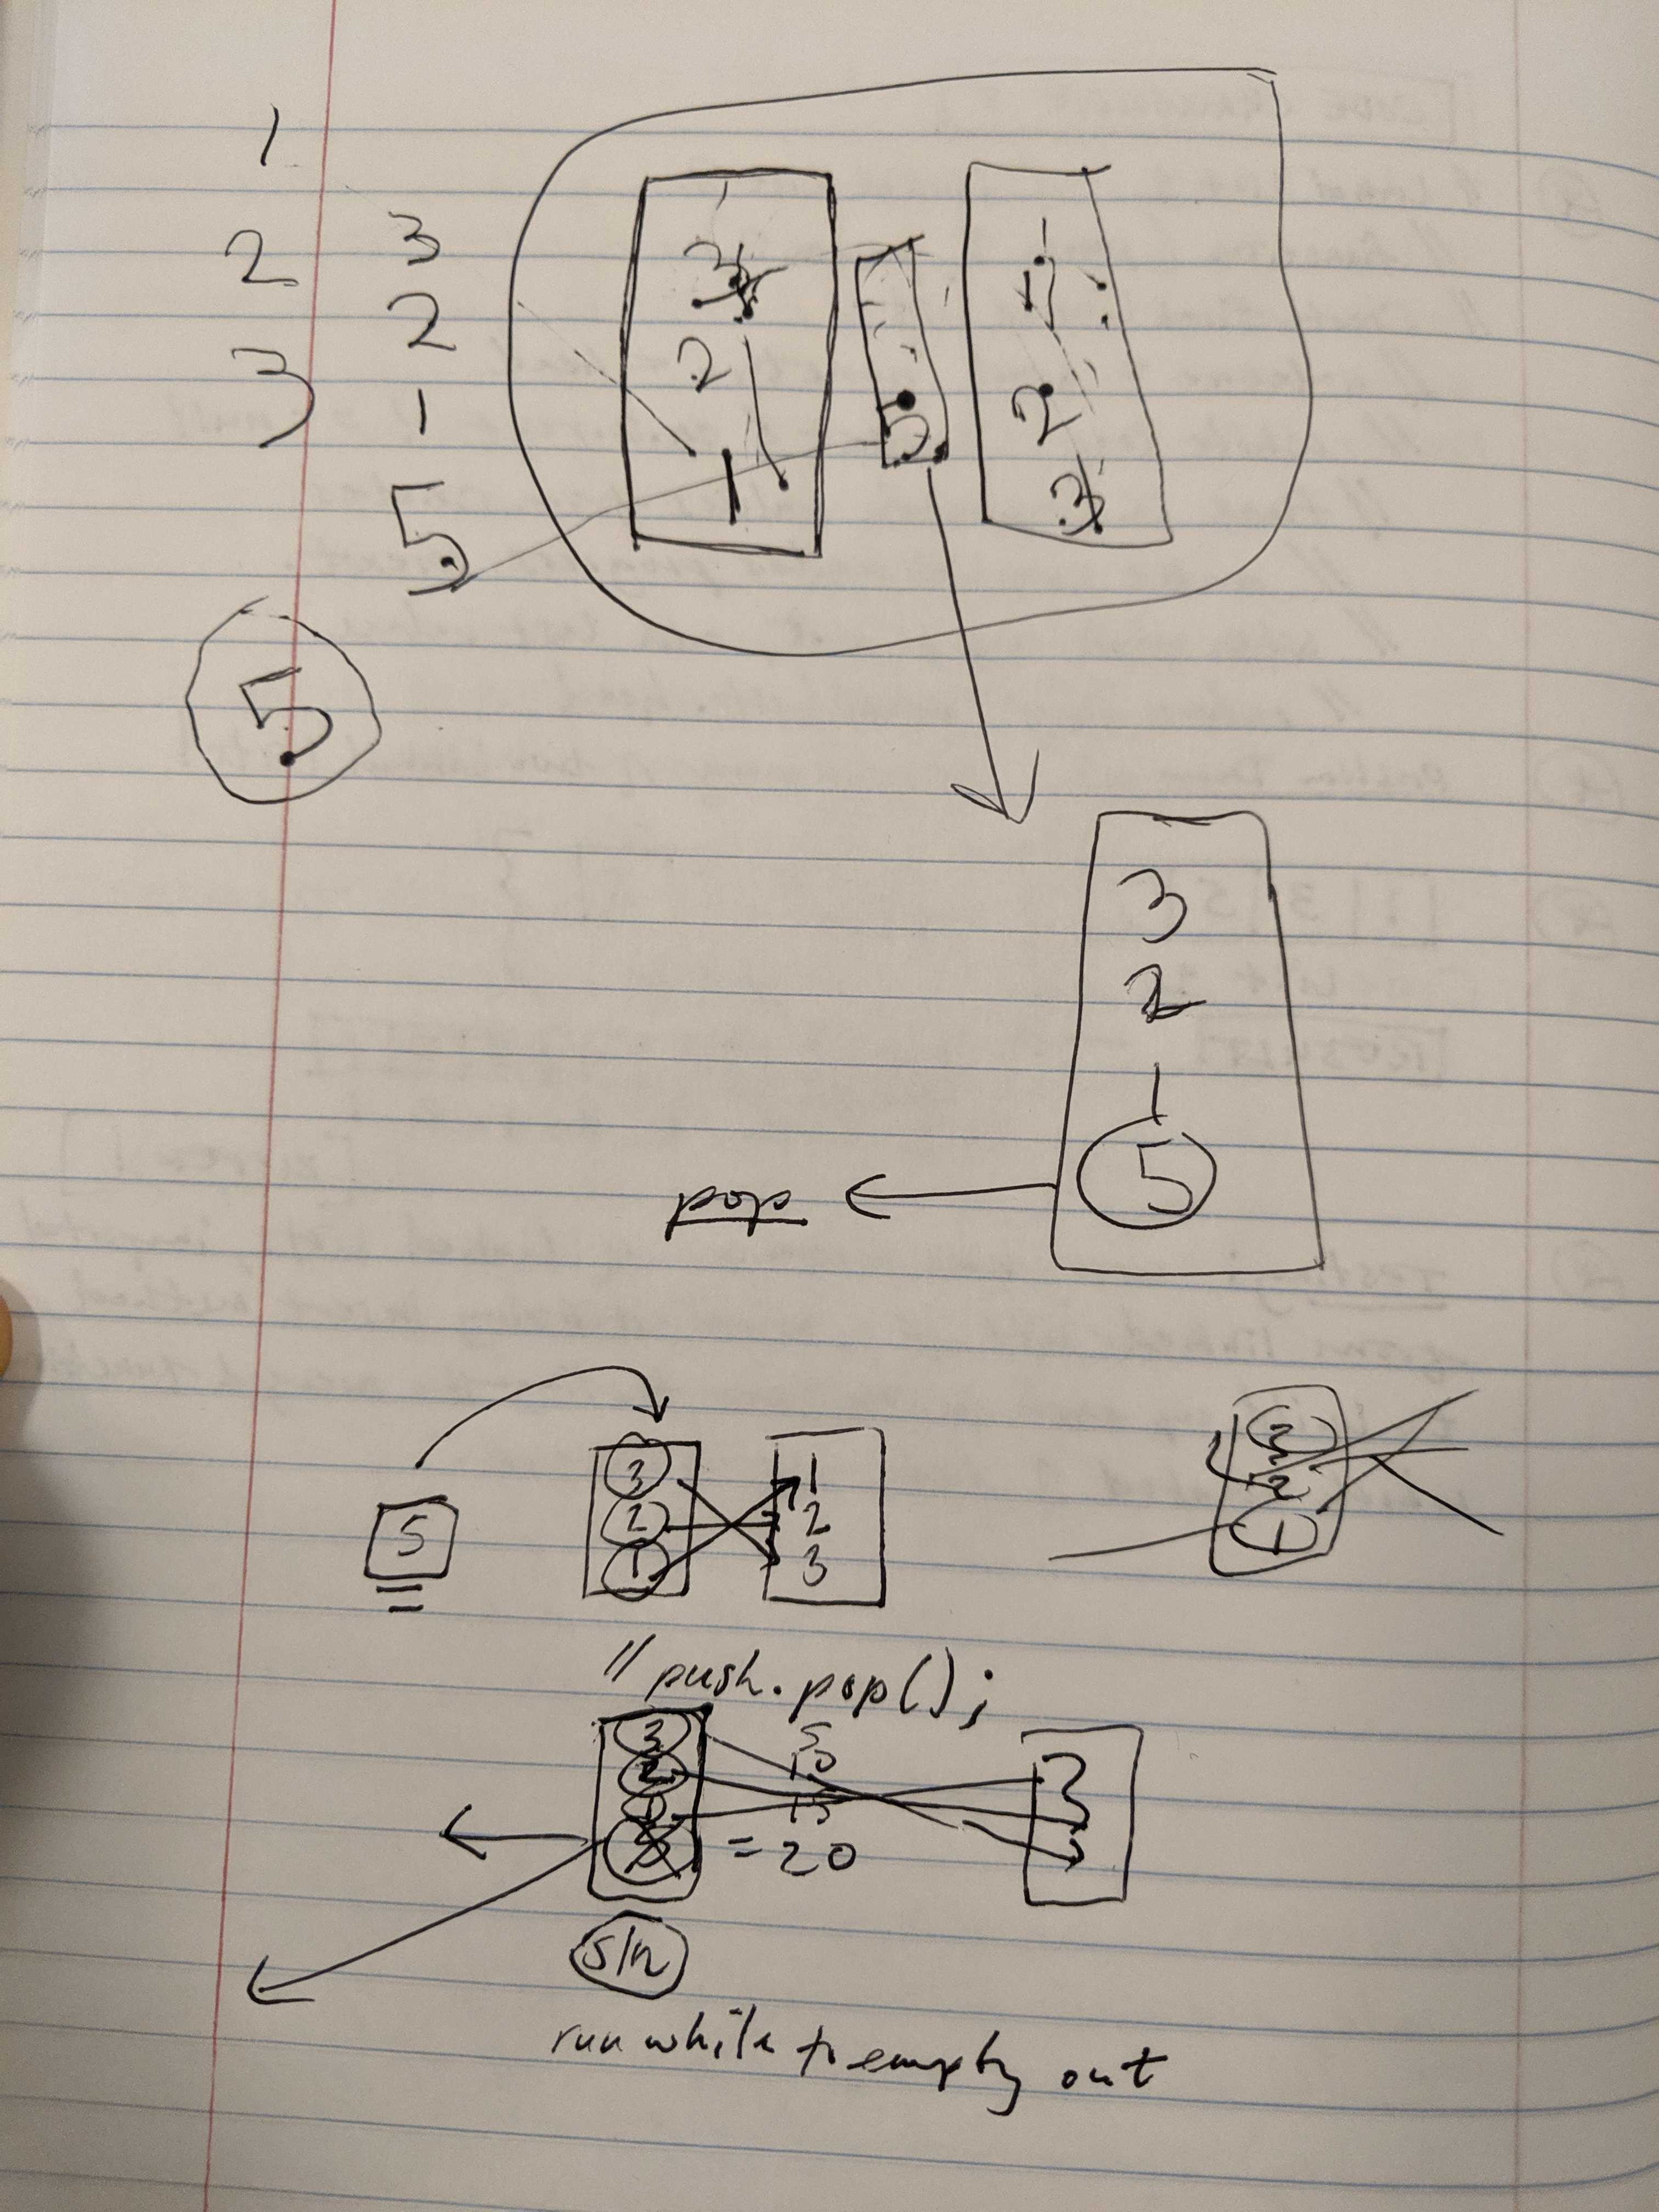 1
2 3
3 2
1
5
3
2
1
5
2
1
2
3
5
3
2
1
5
pop
5
3 1
2 2
1 3
3
2
1
// push.pop();
3 5
2 10
1 15
= 20
run while to empty out